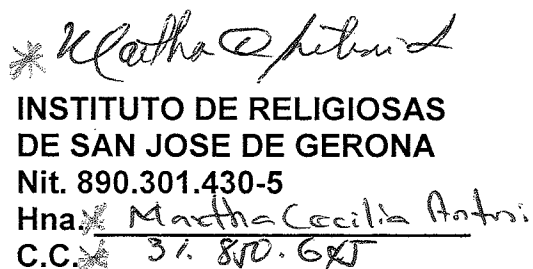 Martha
INSTITUTO DE RELIGIOSAS
DE SAN JOSE DE GERONA
Nit. 890.301.430-5
Hna. Martha Cecilia
C.C. 31.850.645